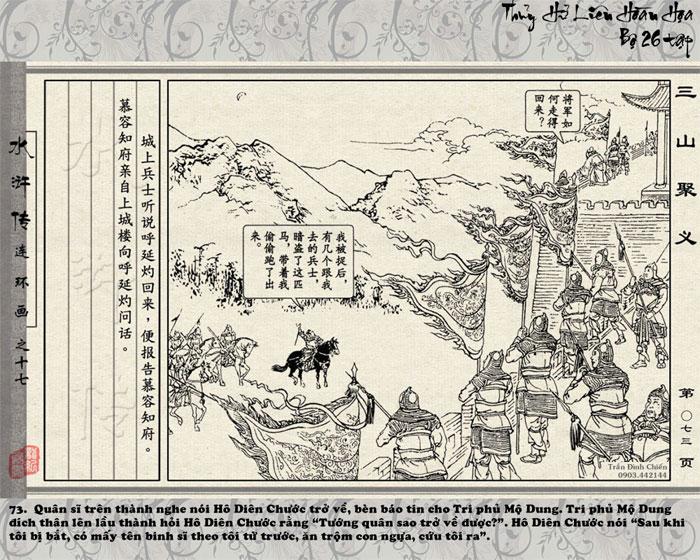 Thủy Hử Liên Hoàn Họa
Bộ 26 tập
三山聚义
第〇七三页
将军如
何走得
回来？
我被捉后，
有几个跟我
去的兵士，
暗盗了这匹
马，带着我
偷偷跑了出
来。
城上兵士听说呼延灼回来，便报告慕容知府。
慕容知府亲自上城楼向呼延灼问话。
水浒传
水浒传连环画之十七
Trần Đình Chiến
0903.442144
73. Quân sĩ trên thành nghe nói Hô Diên Chước trở về, bèn báo tin cho Tri phủ Mộ Dung. Tri phủ Mộ Dung
đích thân lên lầu thành hỏi Hô Diên Chước rằng “Tướng quân sao trở về được?”. Hô Diên Chước nói “Sau khi
tôi bị bắt, có mấy tên binh sĩ theo tôi từ trước, ăn trộm con ngựa, cứu tôi ra”.